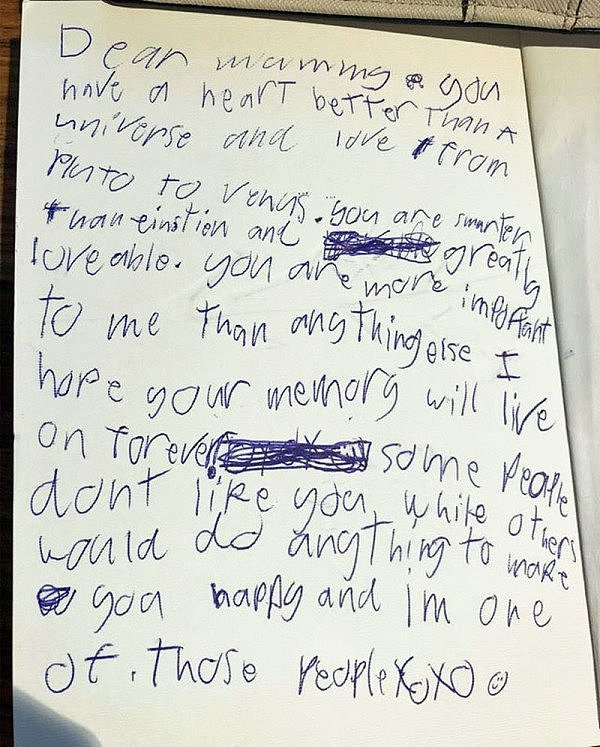 Dear mummy you
have a heart better than A
universe and love from
Pluto to Venus. you are smarter
than einstien and greatly
loveable. you are more important
to me than anything else I
hope your memory will live
on forever. some people
dont like you, while others
would do anything to make
you happy and im one
of. those people XOXO ☺